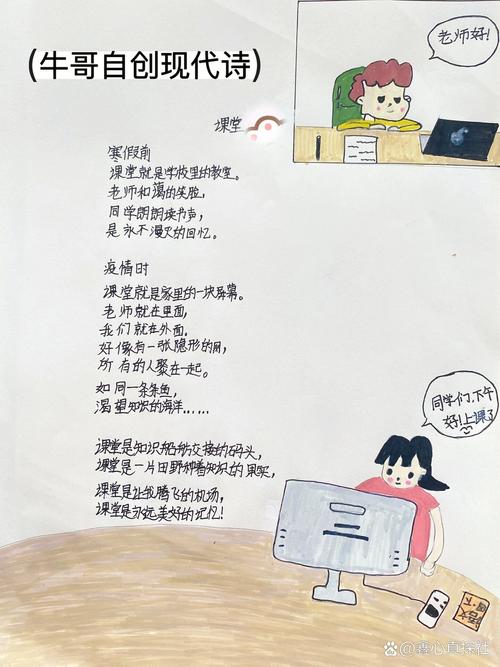 (牛哥自创现代诗)
老师好!
课堂
寒假前
课堂就是学校里的教室。
老师和蔼的笑脸,
同学朗朗读书声,
是永不漫灭的回忆。
疫情时
课堂就是家里的一块屏幕。
老师就在里面,
我们就在外面。
好像有一张隐形的网,
所有的人聚在一起。
如同一条条鱼,
渴望知识的海洋……
课堂是知识船舶交接的码头,
课堂是一片田野种着知识的果实,
课堂是让我腾飞的机场,
课堂是永远美好的记忆!
同学们,下午
好!上课了
语文
下
森心真探社